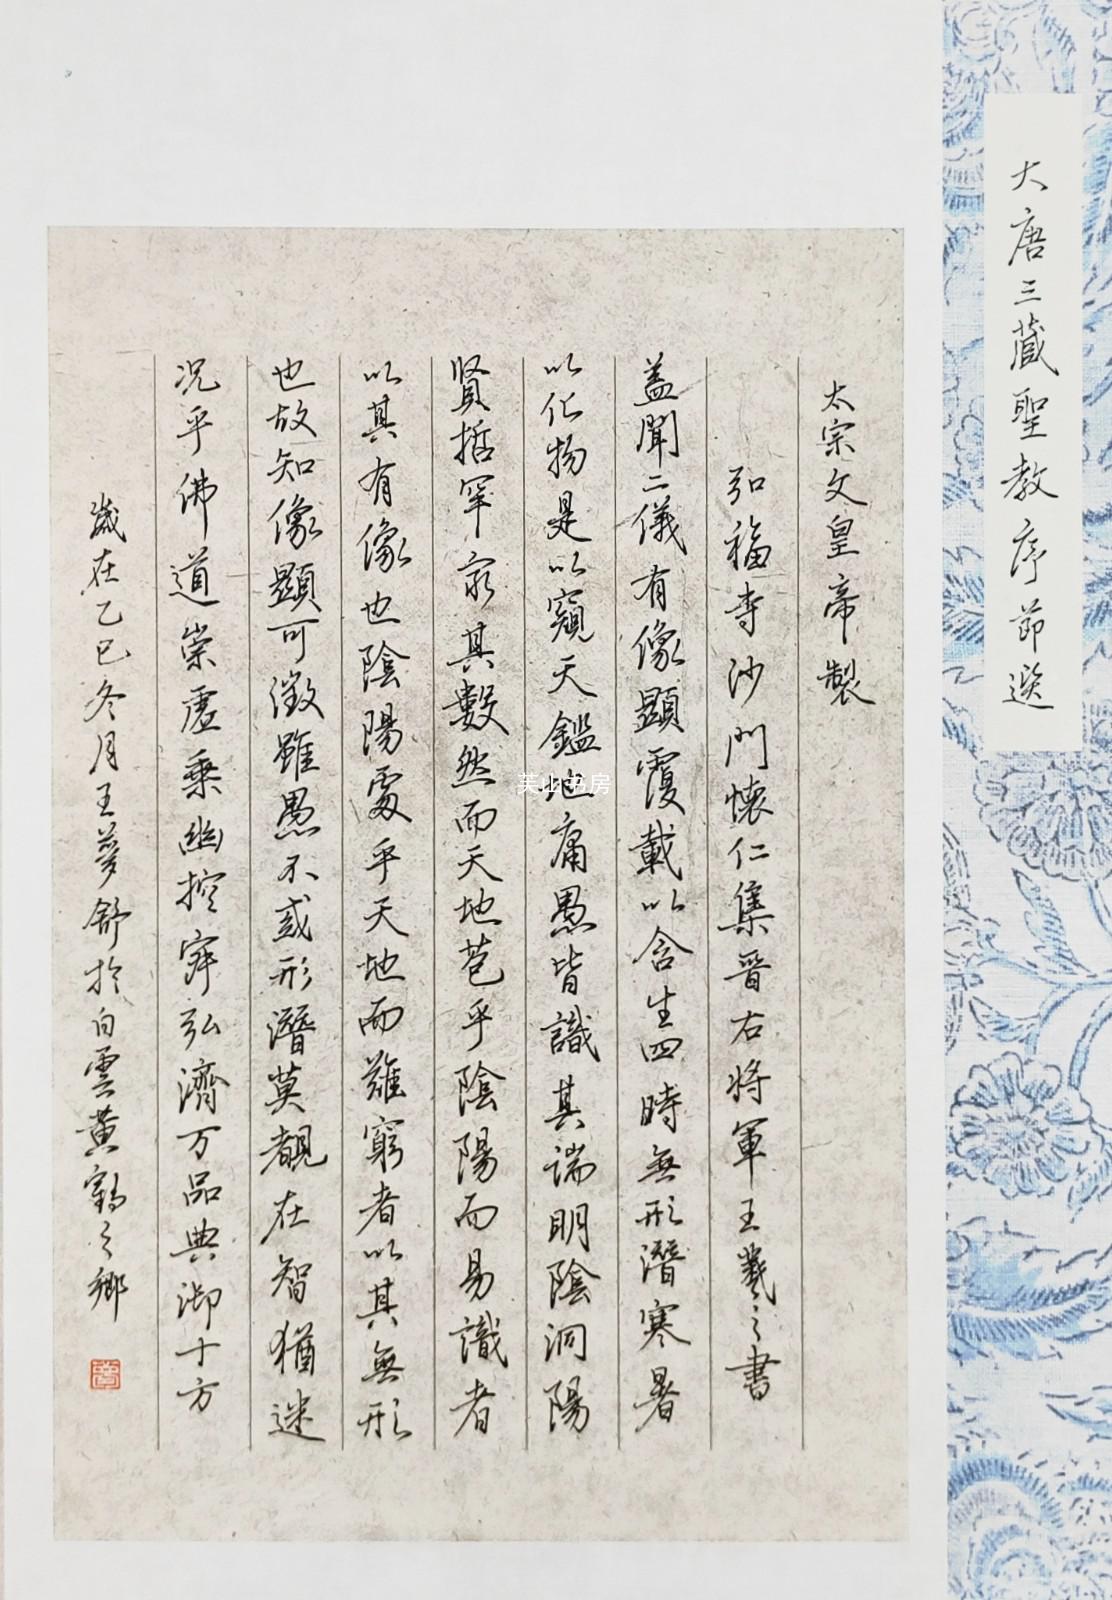 大唐三藏聖教序節選
太宗文皇帝製
弘福寺沙門懷仁集晉右將軍王羲之書
蓋聞二儀有像顯覆載以含生四時無形潛寒暑
以化物是以窺天鑑地庸愚皆識其端明陰洞陽
賢哲罕窮其數然而天地苞乎陰陽而易識者
以其有像也陰陽處乎天地而難窮者以其無形
也故知像顯可徵雖愚不惑形潛莫覩在智猶迷
況乎佛道崇虛乘幽控寂弘濟万品典御十方
歲在乙巳冬月王夢舒於白雲黃鶴之鄉
芙山书房